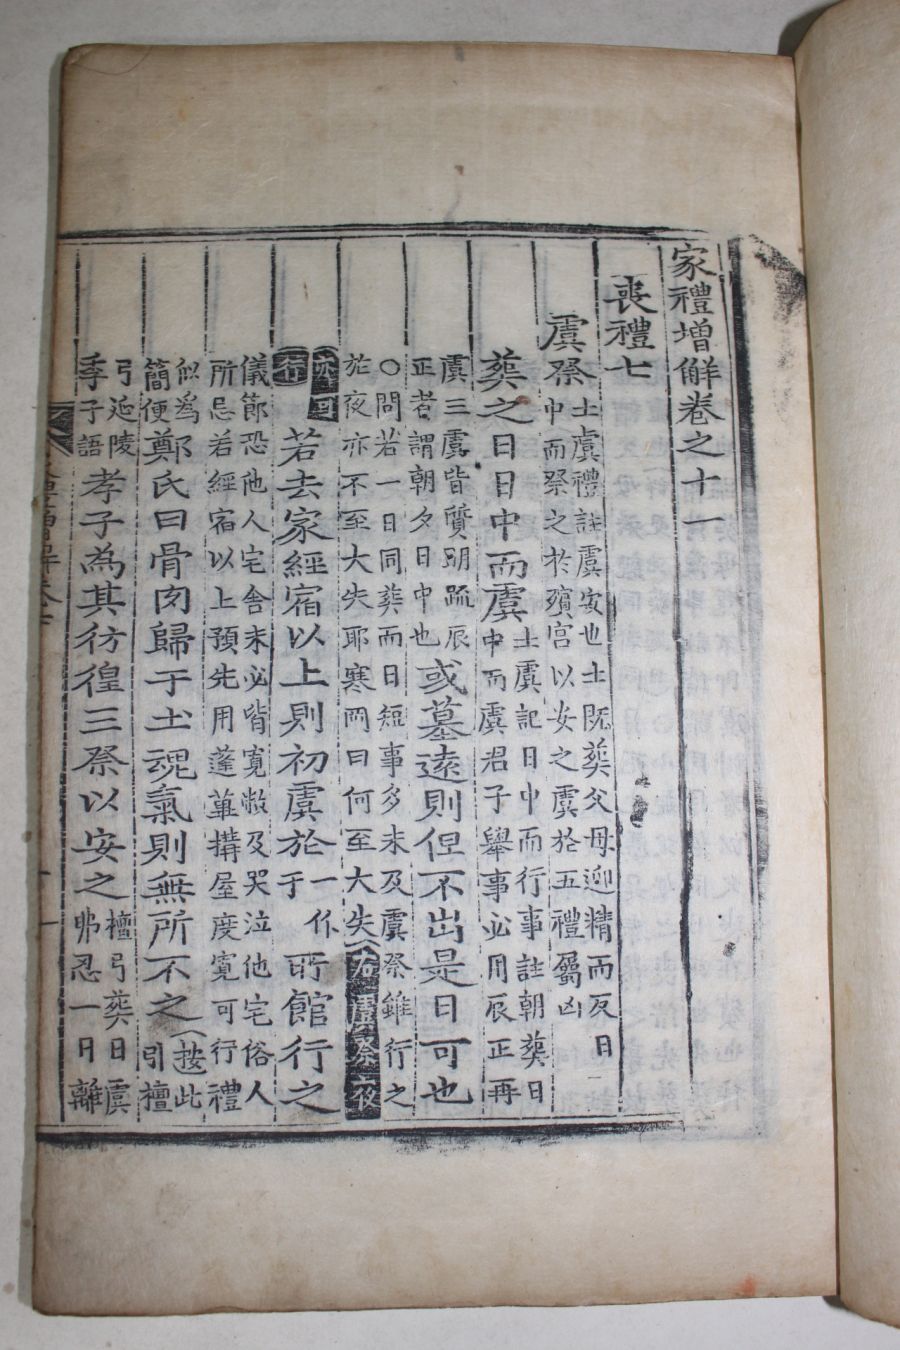 家禮增解卷之十一
喪禮七
虞祭士虞禮註虞安也士既葬父母迎精而反日中而祭之於殯宮以安之虞於五禮屬凶
葬之日日中而虞士虞記日中而行事註朝葬日中而虞君子舉事必用辰正再
虞三虞皆質明疏辰正者謂朝夕日中也或墓遠則但不出是日可也
○問若一日同葬而日短事多未及虞祭雖行之於夜亦不至大失耶寒岡曰何至大失右虞祭夜
行若去家經宿以上則初虞於一作于所館行之
儀節恐他人宅舍未必皆寬敞及哭泣他宅俗人所忌若經宿以上預先用蓬蓽搆屋度寬可行禮
似爲簡便鄭氏曰骨肉歸于土魂氣則無所不之按此引檀
弓延陵季子語孝子為其彷徨三祭以安之檀弓葬日虞弗忍一日離